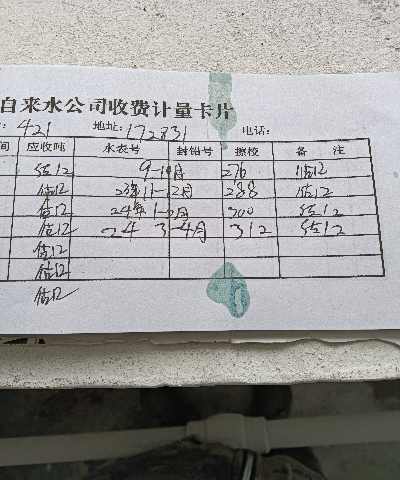 自来水公司收费计量卡片
: 421 地址: 172831 电话:
间 应收吨 水表号 封铅号 擦校 备 注
估12 9-10月 276 估12
估12 23年11-12月 288 估12
估12 24年1-2月 300 估12
估12 24 3-4月 312 估12
估12
估12
估12